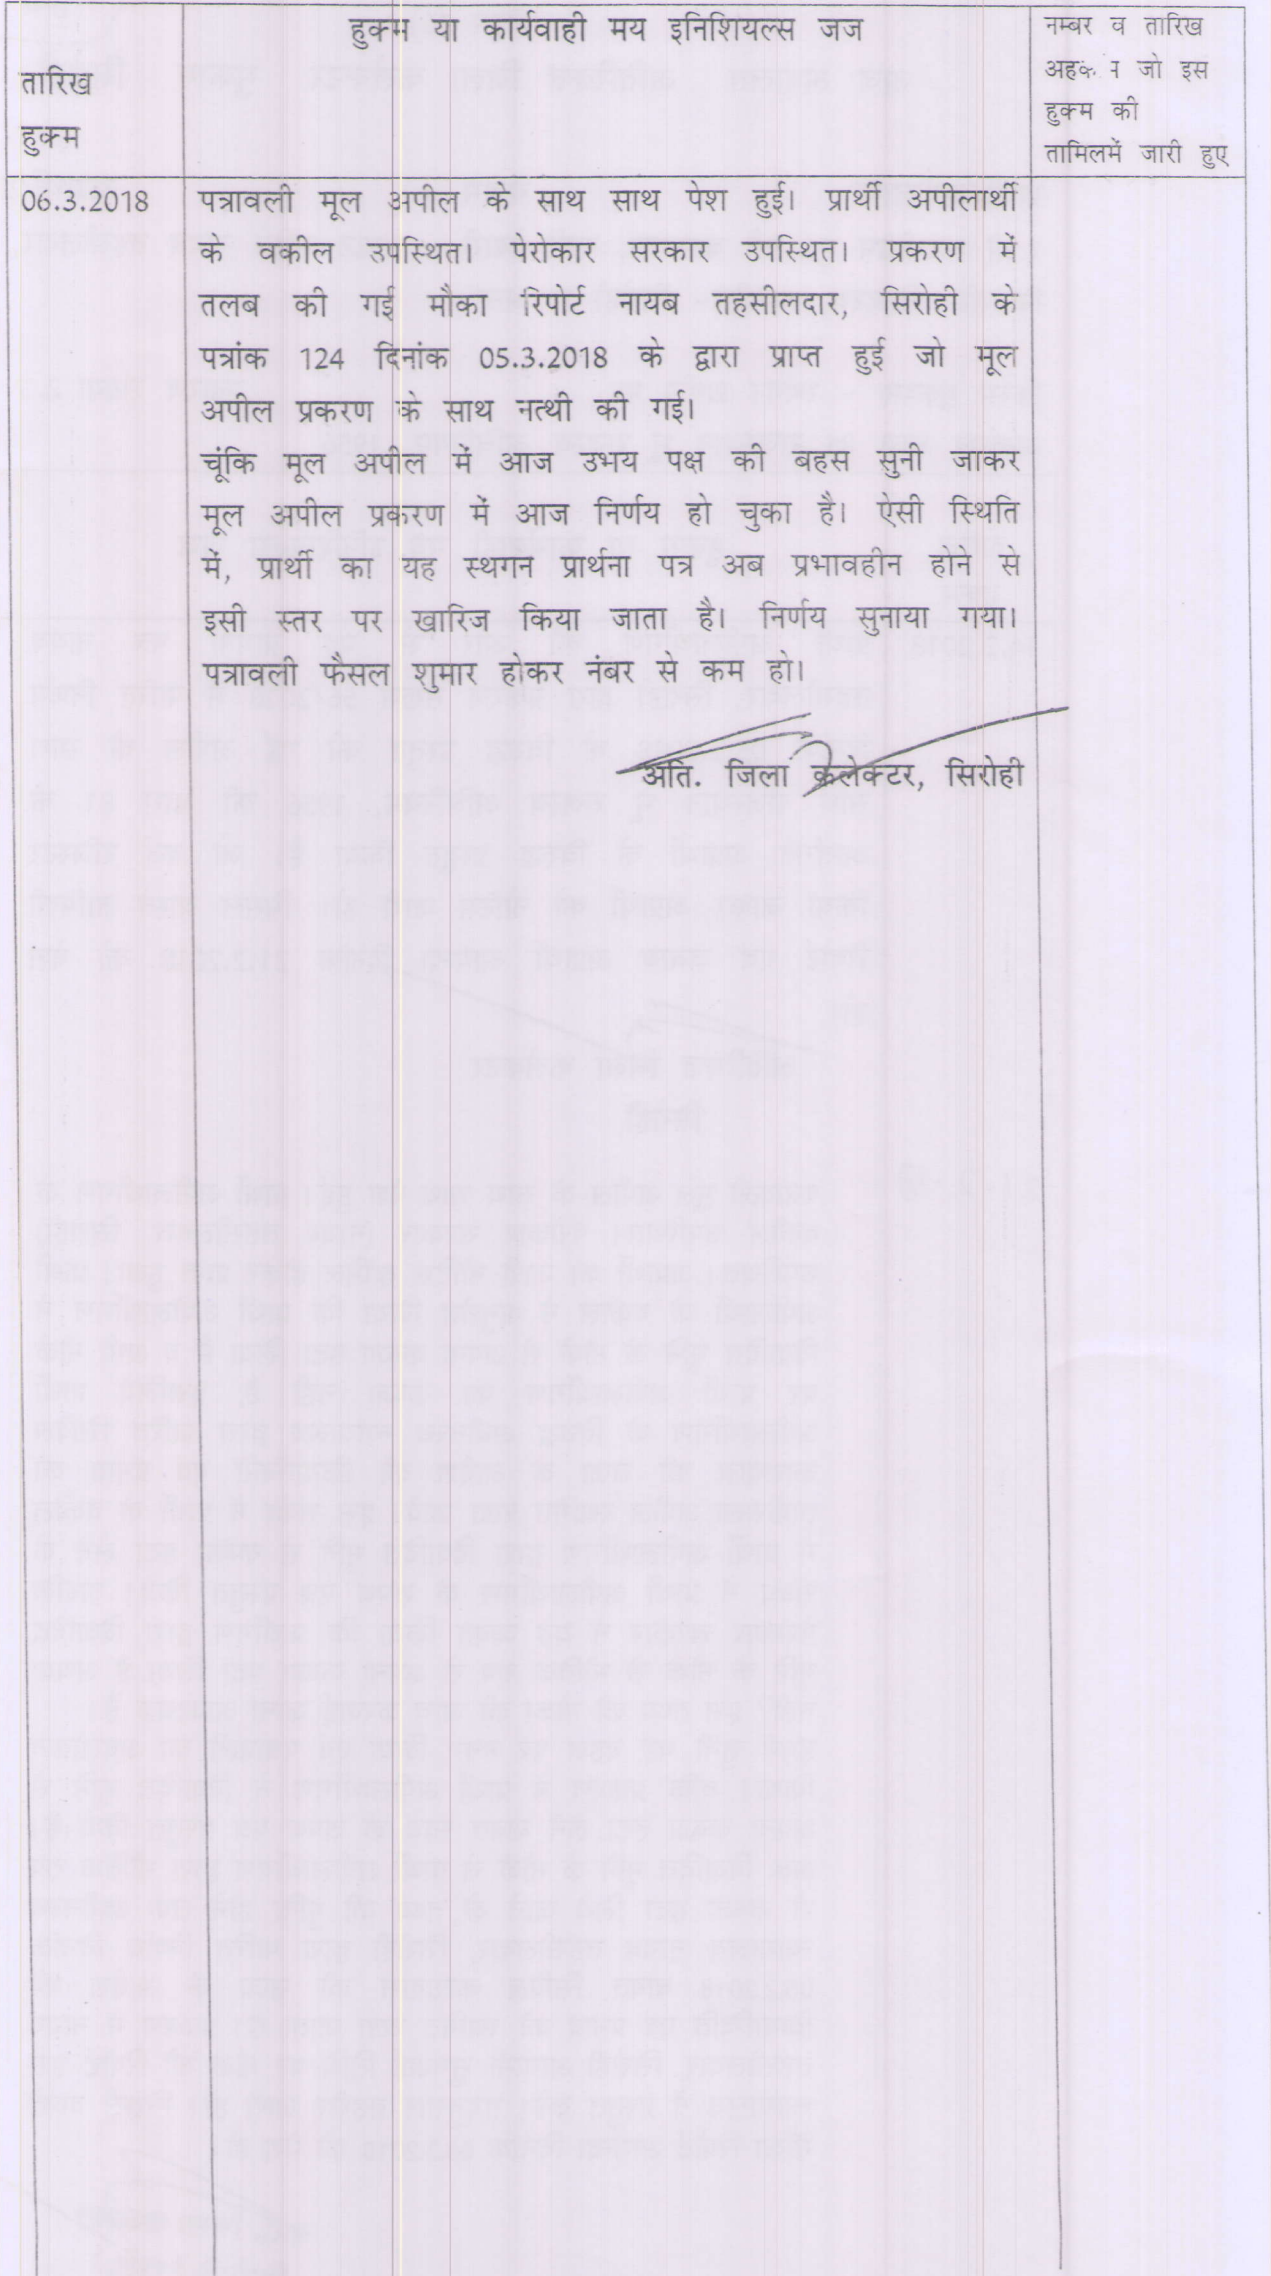 हुकम या कार्यवाही मय इनिशियल्स जज
तारिख
हुकम
नम्बर व तारिख
जो इस
हुकम की
तामिलमें जारी हुए
06.3.2018
पत्रावली मूल अपील के साथ साथ पेश हुई। प्रार्थी अपीलार्थी
के वकील उपस्थित। पेरोकार सरकार उपस्थित। प्रकरण में
तलब की गई मौका रिपोर्ट नायब तहसीलदार, सिरोही के
पत्रांक 124 दिनांक 05.3.2018 के द्वारा प्राप्त हुई जो मूल
अपील प्रकरण के साथ नत्थी की गई।
चूंकि मूल अपील में आज उभय पक्ष की बहस सुनी जाकर
मूल अपील प्रकरण में आज निर्णय हो चुका है। ऐसी स्थिति
में, प्रार्थी का यह स्थगन प्रार्थना पत्र अब प्रभावहीन होने से
इसी स्तर पर खारिज किया जाता है। निर्णय सुनाया गया।
पत्रावली फैसल शुमार होकर नंबर से कम हो।
अति. जिला कलेक्टर, सिरोही